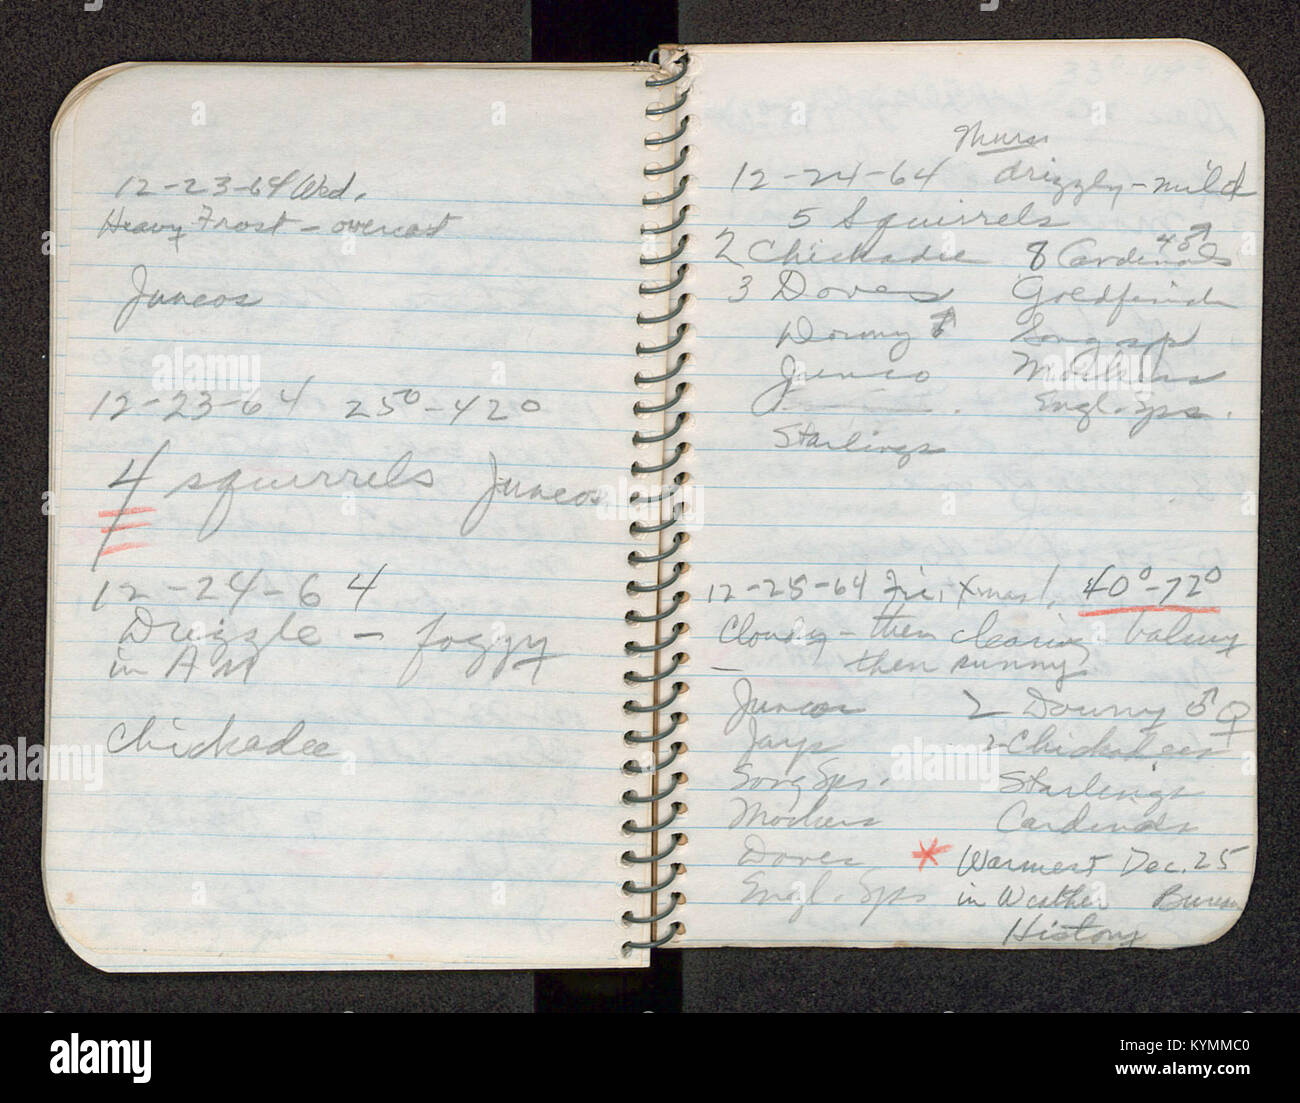 12-23-64 Wed.
Heavy Frost - overcast
Juncos
12-23-64 25°-42°
4 squirrels Juncos
12-24-64
Drizzle - foggy
in AM
Chickadee
Thurs
12-24-64 drizzly - mild
5 Squirrels
2 Chickadee 8 Cardinals 4♂
3 Doves Goldfinch
Downy ♂ Song sps
Junco Mockers
Engl. Sps.
Starlings
12-25-64 Fri, Xmas!, 40°-72°
Cloudy - then clearing balmy
- then sunny
Juncos 2 Downy ♂ ♀
Jays 2 Chickadees
Song Sps. Starlings
Mockers Cardinals
Doves * Warmest Dec. 25
Engl. Sps in Weather Bureau
History
alamy
Image ID: KYMMC0
www.alamy.com